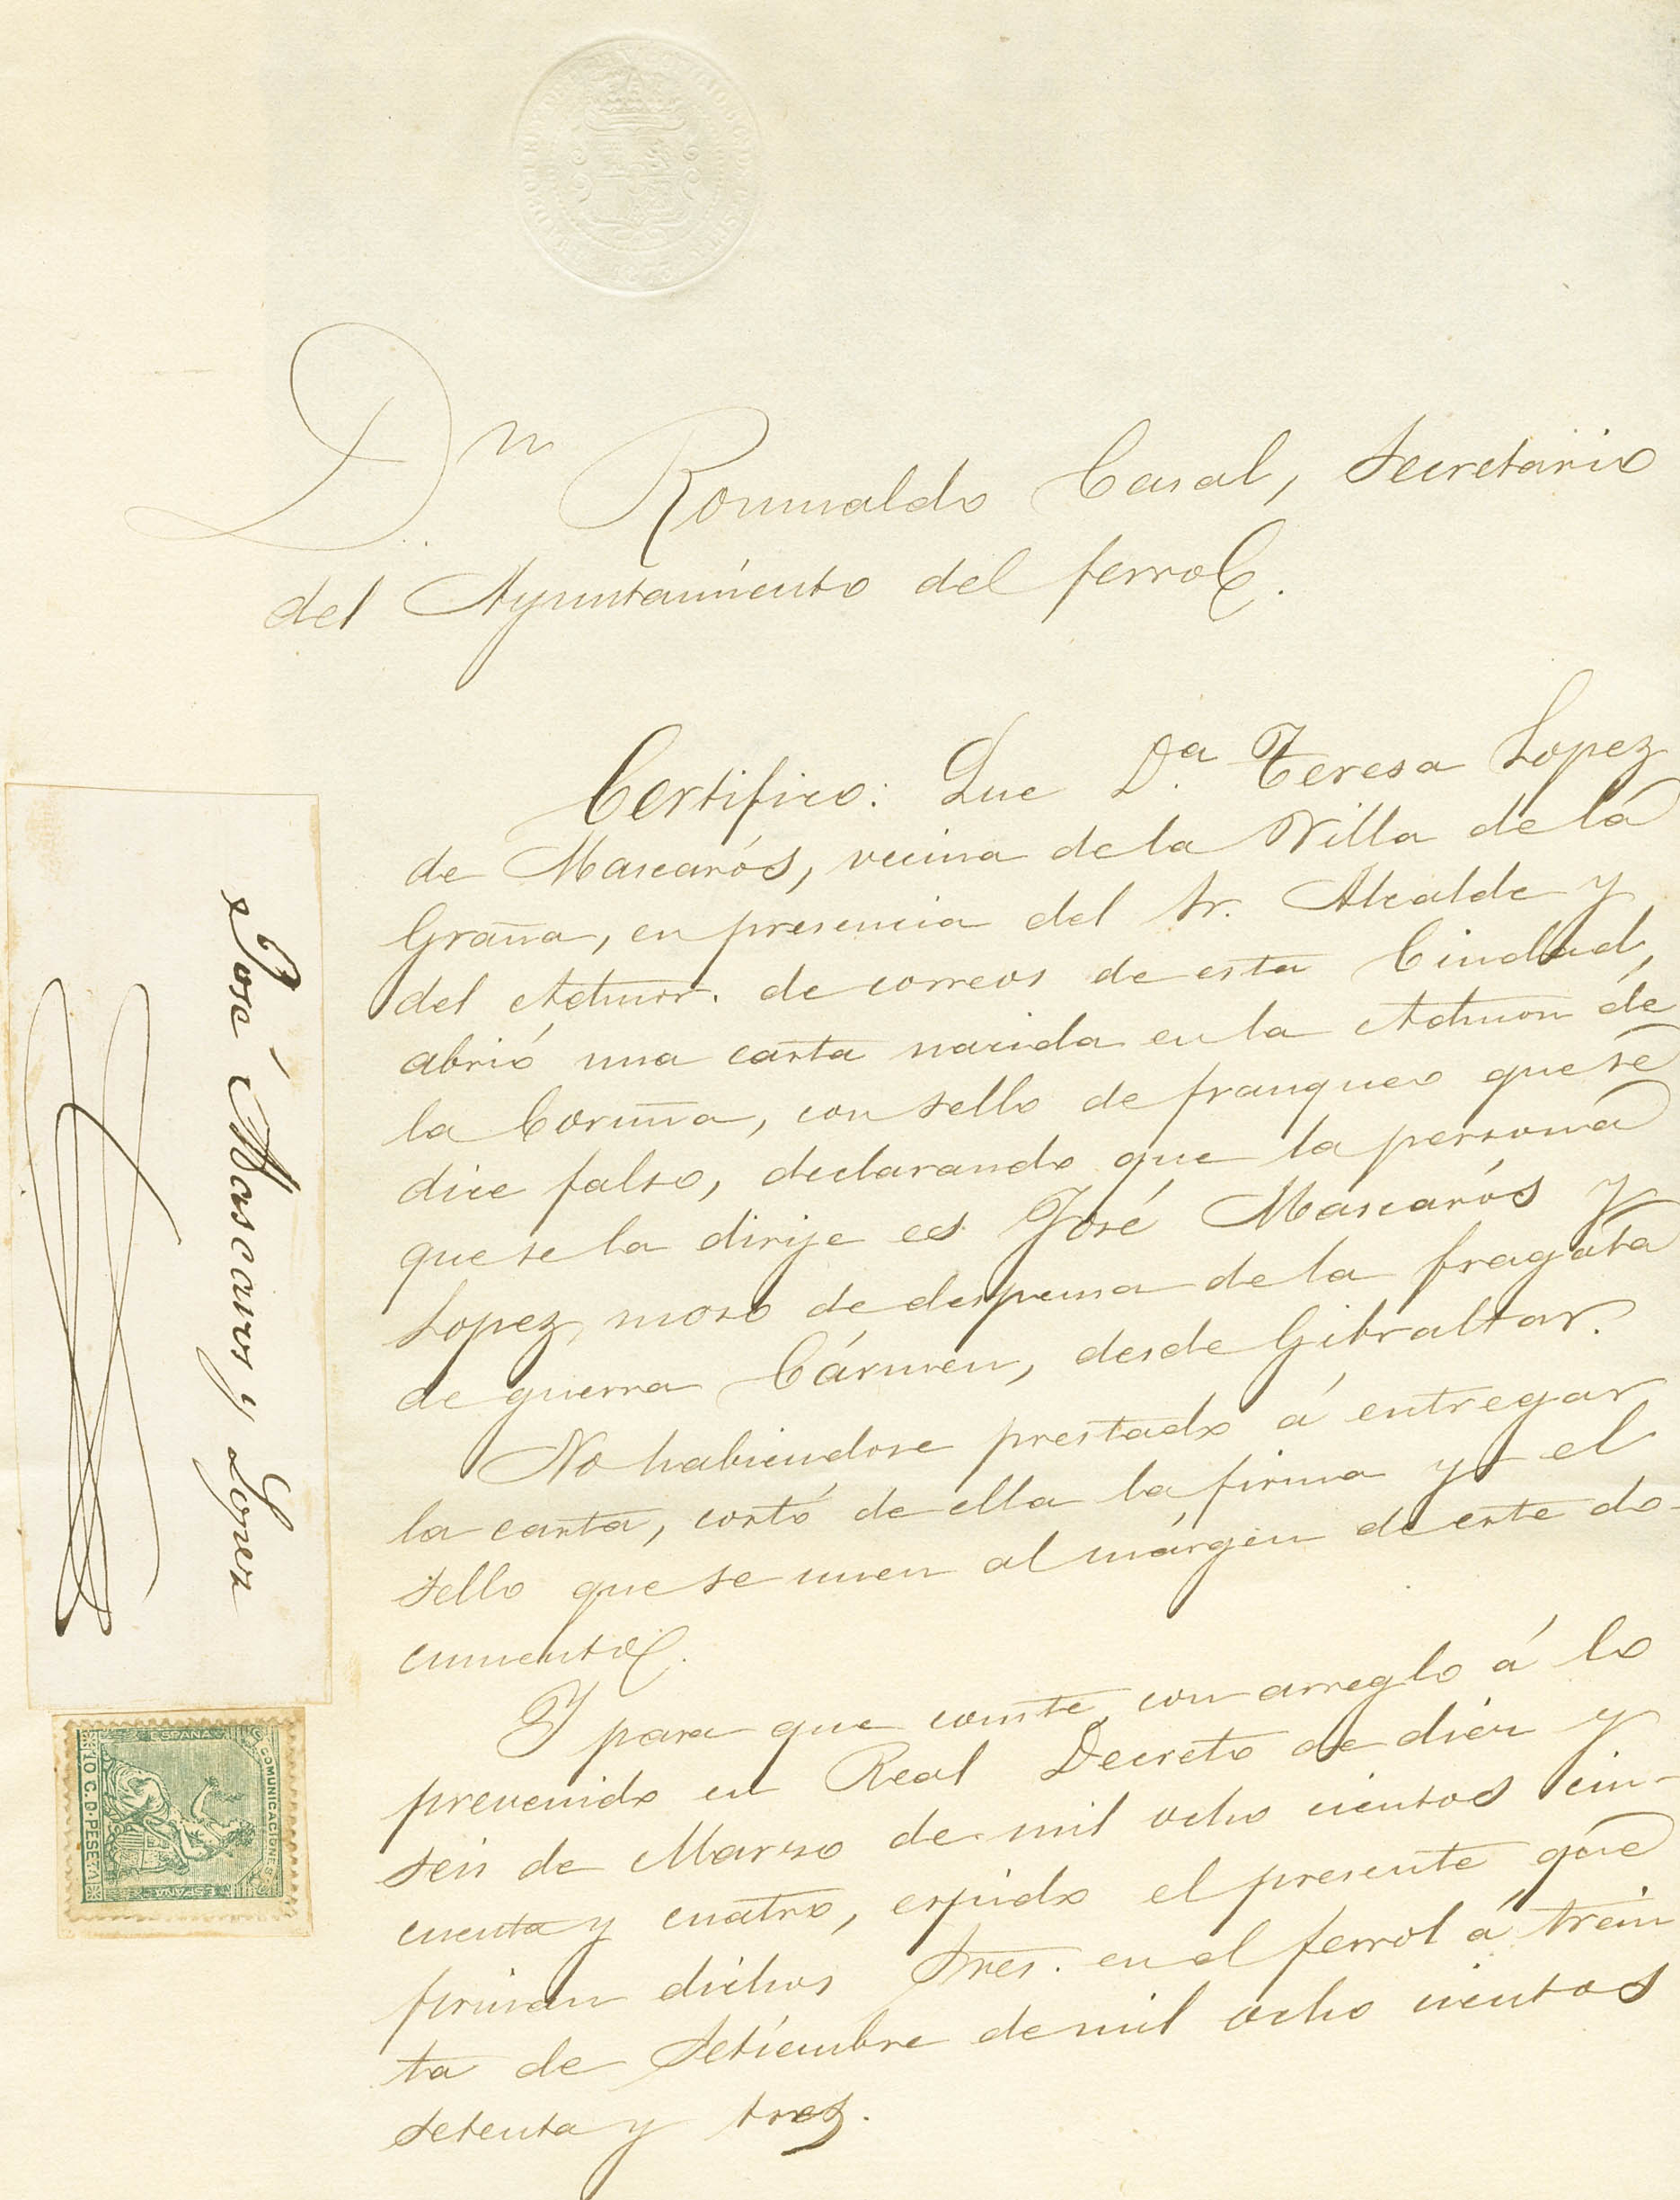 Dn. Romualdo Casal, Secretario
del Ayuntamiento del ferrol.
Certifico: Que Da. Teresa Lopez
de Mascarós, vecina de la Villa de la
Graña, en presencia del Sr. Alcalde y
del Admor. de correos de esta Ciudad,
abrió una carta nacida en la Admon de
la Coruña, con sello de franqueo que se
dice falso, declarando que la persona
que se la dirije es José Mascarós y
Lopez, moso de despensa de la fragata
de guerra Cármen, desde Gibraltar.
No habiendose prestado á entregar
la carta, cortó de ella la firma y el
sello que se unen al márgen de este do-
cumento.
Y para que conste, con arreglo á lo
prevenido en Real Decreto de diez y
seis de Marzo de mil ocho cientos cin-
cuenta y cuatro, espido el presente que
firman dichos Sres. en el ferrol á trein
ta de Setiembre de mil ocho cientos
setenta y tres.
José Mascaros y Lopez
COMUNICACIONES
ESPAÑA
ESPAÑA
10 C. D. PESETA